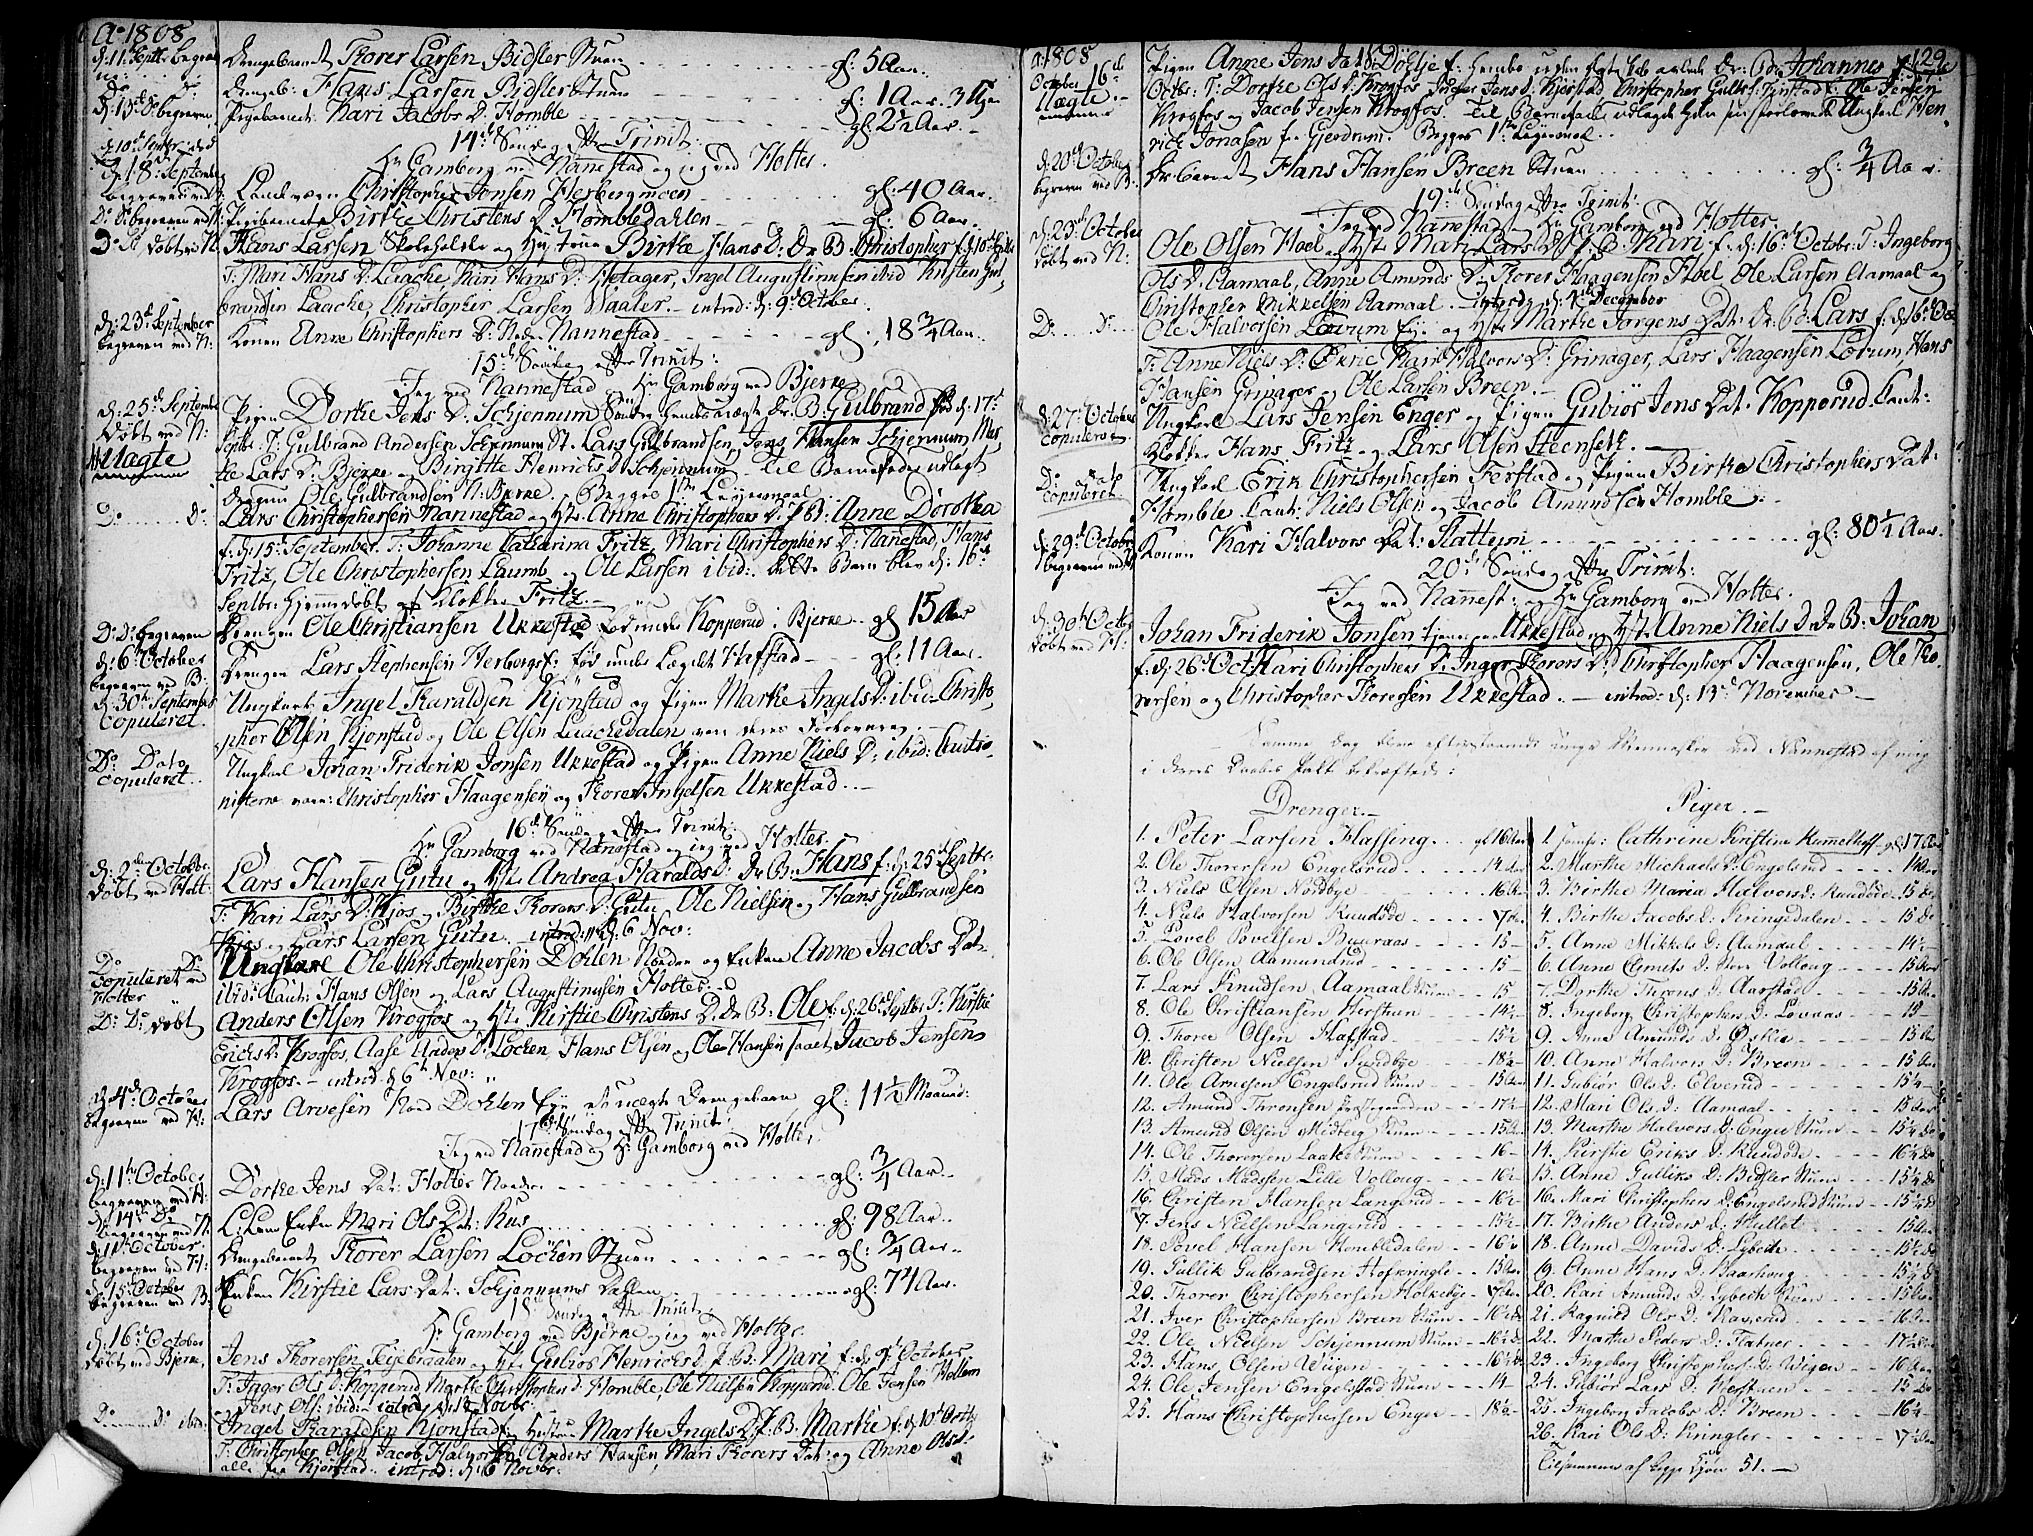 Ao 1808
d: 11 Septbr begrav Drengebarnet Thorer Larsen Bidsler Stuen gl: 5 Aar.
Do Do Drengeb: Hans Larsen Bidsler Stuen gl: 1 Aar 3
d: 13 Do begraven Pigebarnet: Kari Jacobs D: Homble gl: 2½ Aar
14de Søndag efter Trinit:
Hr Gamborg ved Nannestad og jeg ved Holter.
d. 18de September Christopher Jonsen Herbergmoen gl: 40 Aar
Do Do begraven ved N: Pigebarnet Birthe Christens D: Hombledahlen gl: 6 Aar
Do Do døbt ved N. Hans Larsen Skoleholder og Hst: Birthe Hans D: Dr B: Christopher
T: Mari Hans D: Laache, Kari Hans D: Hotager, Ingel Augustinusen ibid Kirsten Gul
brandsen Laache, Christopher Larsen Waaler. introd: d. 9de October
d: 23de September
begraven ved N: Konen Anne Christophers D: Nannestad gl: 18¾ Aar.
15de Søndag efter Trinit:
Jeg ved Nannestad og Hr Gamborg ved Bjerke
d: 25de Septembr Pigen Dorthe Jens D: Schjennum B: Gulbrand fød d: 17de
Døbt ved N: Septbr T: Gulbrand Andersen Schjennum St. Lars Gulbrandsen, Jens Hansen Schjennum, Mar
Uægte the Lars D: Bjerke og Birgitte Henrichs D. Schjennum til Barnefader udlagt
Ole Gulbrandsen N: Bjerke. Begges 1ste Leiermaal
Do Do Lars Christophersen Nannestad og Hst: Anne Christophers D: P B: Anne Dorothea
f: d: 15de September T: Johanne Catharina Fritz, Mari Christophers D: Nanestad, Hans
Fritz, Ole Christophersen Laumb og Ole Larsen ibid: dette Barn blev d: 16de
Septbr: hjemmedøbt af Klokker Fritz
Do Do begraven Drengen Ole Christiansen Ukkestad Kopperud i Bjerke gl 15 Aar
d: 6te October
begraven ved B: Drengen Lars Stephensen Herbergs: født under Lægdet Hafstad gl: 11 Aar
d: 30te September
copuleret Ungkarl Ingel Haraldsen Kjønstad og Pigen Marthe Ingels D: ibid: Christo
pher Olsen Kjønstad og Ole Olsen Laachedalen vare deres Forlovere
Do Dato
copuleret Ungkarl Johan Friderik Jonsen Ukkestad og Pigen Anne Niels D: ibid: Cautio
nisterne vare: Christopher Haagensen og Thorer Ingelsen Ukkestad
16de Søndag efter Trinit:
Hr Gamborg ved Nannestad og jeg ved Holter.
d: 2den October
døbt ved Holt: Lars Hansen Gutu og Hst: Andrea Haralds D: Dr B: Hans f: d: 25de Septbr:
T: Kari Lars D: Kjos, Birthe Thorers D: Gutu, Ole Nielsen og Hans Gulbrandsen
Kjos og Lars Larsen Gutu. introd: d: 6 Nov:
Do Do
copuleret ved
Holter Ungkarl Ole Christophersen Dohlen Nordre og Enken Anne Jacobs Dat:
ibid: Caut: Hans Olsen og Lars Augustinusen Holter
Do Do døbt Anders Olsen Krogfos og Hst: Kirstie Christens D. Dr B: Ole f: d: 26de Septbr T: Kirstie
Erichs D: Krogfos, Aase Anders D: Løcken, Hans Olsen og Ole Hansen samt Jacob Jensen
Krogfos. introd. d 6te Nov:
d: 4de October
begraven ved H: Lars Arvesen Nord Dohlen Eye Uægte Drengebarn gl: 11½ Maaned:
17de Søndag efter Trinit:
Jeg ved Nannestad og Hr Gamborg ved Holter.
d: 11te October
begraven ved H: Dorthe Jens Dat: Holter Nordre gl: ¾ Aar
d: 14de Do
begraven ved N. Enken Mari Ols Dat: Rus gl: 98 Aar
d: 11te October
begraven ved H: Drengebarnet Thorer Larsen Løchen Stuen gl: ¾ Aar
d: 15de October
begraven ved B: Enken Kirstie Lars Dat: Schjennums Dalen gl: 74 Aar.
18de Søndag efter Trinit:
Hr Gamborg ved Bjerke og jeg ved Holter.
d: 16de October
døbt ved Bjerke Jens Thorersen Teigebraaten og Hst: Gubiør Henrichs D. P: B: Mari f: d: October
T: Inger Ols D: Kopperud, Marthe Christophers D: Homble, Ole Nielsen Kopperud, Ole Jensen Hellem
Jens Ols: ibid: introd: Novbr:
Do Do ibid: Ingel Haraldsen Kjønstad og Hustrue Marthe Ingels D: P. B: Marthe f: d: 10de
T: Christopher Olsen, Jacob Halvorsen, Anders Hansen, Mari Thorers Dat: og Anne Ols D:
alle fra Kjønstad. introd: d: 6 Novbr:
Ao 1808 129
October 16de
Uægte Pigen Anne Jens Dat: Døhlie Dr: B: Johannes
Octbr: T: Dorthe Ols D: Krogfos Inger Jens D: Kjerstad, Christopher Gulbr: Ole Jensen
Krogfos og Jacob Jensen Krogfos. Til Barnefader udlagde hun sin forlovede Ungkarl Hen
rich Jonasen fra Gjerdrum. Begges 1ste Leiermaal.
d: 20de October
begraven ved B: Dr: barnet Hans Hansen Breen Stuen gl: ¾ Aar
19de Søndag efter Trinit:
Jeg ved Nannestad, Hr Gamborg ved Holter.
d: 23de October
døbt ved N: Ole Olsen Hoel og Hst: Mari Lars D: P. B: Kari f: d: 16de Octobr: T: Ingeborg
Ols D: Aamaal, Anne Amunds D: Thorer Haagensen Hoel, Ole Larsen Aamaal og
Christopher Mikkelsen Aamaal. introd: d: December
Do Do Ole Halvorsen Lørum Eye og Hst: Marthe Jørgens Dat: Dr: B: Lars f: d: 16de Oc
T: Anne Niels D: Økne, Mari Halvors D: Grinager, Lars Haagensen Lørum, Hans
Hansen Grinager og Ole Larsen Breen.
d: 27de October
copuleret Ungkarl Lars Jensen Enger og Pigen Gubiør Jens Dat. Kopperud. Caut:
Klokker Hans Fritz og Lars Olsen Steenseth.
Do Dato
copuleret Ungkarl Erik Christophersen Ferstad og Pigen Birthe Christophers Dat:
Homble. Caut: Niels Olsen og Jacob Amundsen Homble
d: 29de October
begraven ved Konen Kari Halvors Dat: Slattum gl: 80½ Aar.
20de Søndag efter Trinit:
Jeg ved Nannest: og Hr Gamborg ved Holter.
d: 30te Octobr
døbt ved N: Johan Friderik Jonsen, tjenende Ukkestad og Hst: Anne Niels D. Dr B: Johan
f: d: 26de Oct: Kari Christophers D: Inger Thorers D: Christopher Haagensen, Ole Tho
rersen og Christopher Thoresen Ukkestad. introd: d: 13de November
Samme Dag bleve efterstaaende unge Mennesker ved Nannestad af mig
i deres Daabes Pakt bekræftede:
Drenger.
1. Peter Larsen Flassing gl 16 Aar
2. Ole Thorersen Engelsrud 14 Aar
3. Niels Olsen Nordbye 16 Aar
4. Niels Halvorsen Rundøde 17 Aar
5. Povel Povelsen Buuraas 15
6. Ole Olsen Aamundrud 15
7. Lars Knudsen Aamaal Stuen 15
8. Ole Christiansen Herstuen 14½
9. Thore Olsen Hafstad 15½
10. Christen Nielsen Sundbye 18½
11. Ole Arnesen Engelsrud Stuen 15 Aar
12. Amund Thronsen Prestegaarden 17½
13. Amund Olsen Midberg Stuen 15 Aar
14. Ole Thorersen Laake Stuen 16
15. Mads Madsen Lille Vølloug 16½
16. Christen Hansen Langerud 16½
17. Jens Nielsen Langerud 15½
18. Povel Hansen Hombledalen 16½
19. Gullik Gulbrandsen Hofkringle 15 Aar
20. Thorer Christophersen Holkebye 17 Aar
21. Iver Christophersen Breen Stuen 16½
22. Ole Nielsen Schjennum Stuen 16½
23. Hans Olsen Wiigen 16½
24. Ole Jensen Engelstad Stuen 14
25. Hans Christophersen Enger 18½
Piger.
1. Jomfr: Cathrine Kirstine Rummelhoff gl 17 Aar
2. Marthe Michaels D: Engelsrud 14 Aar
3. Birthe Maria Halvors D: Rundøde 15 Do
4. Birthe Jacobs D: Skringsdalen 15 Do
5. Anne Mikkels D: Aamaal 14½
6. Anne Embrets D: Store Vølloug 15 Aar
7. Dorthe Throns D: Aarstad 15 Aar
8. Ingeborg Christophers D: Løvaas 15
9. Anne Amunds D: Øskie 15 Aar
10. Anne Halvors D: Breen 15 Aar
11. Gubiør Ols D: Elverud 15½
12. Mari Ols D: Aamaal 15 Aar
13. Marthe Halvors D: Enger Stuen 15½ Do
14. Kirstie Eriks D: Rundøde 16½ Do
15. Anne Gulliks D: Bedsler Stuen 15½ Do
16. Mari Christophers D: Engelsrud Stuen 15½ Do
17. Birthe Anders D: Hullet 15 Aar
18. Anne Davids D: Lybech 15½ Do
19. Anne Hans D: Baarhoug 15½ Do
20. Kari Amunds D: Lybech Stuen 15 Aar
21. Ragnild Ols D: Haverud 16 Aar
22. Marthe Peders D: Flatner 17½ Do
23. Ingeborg Christophers D: Wigen 16 Aar
24. Gubiør Lars D: Herstuen 15 Do
25. Ingeborg Jacobs D: Breen 16½
26. Kari Ols D: Kringler 17½ Aar
Tilsammen af begge Kjøn 51.